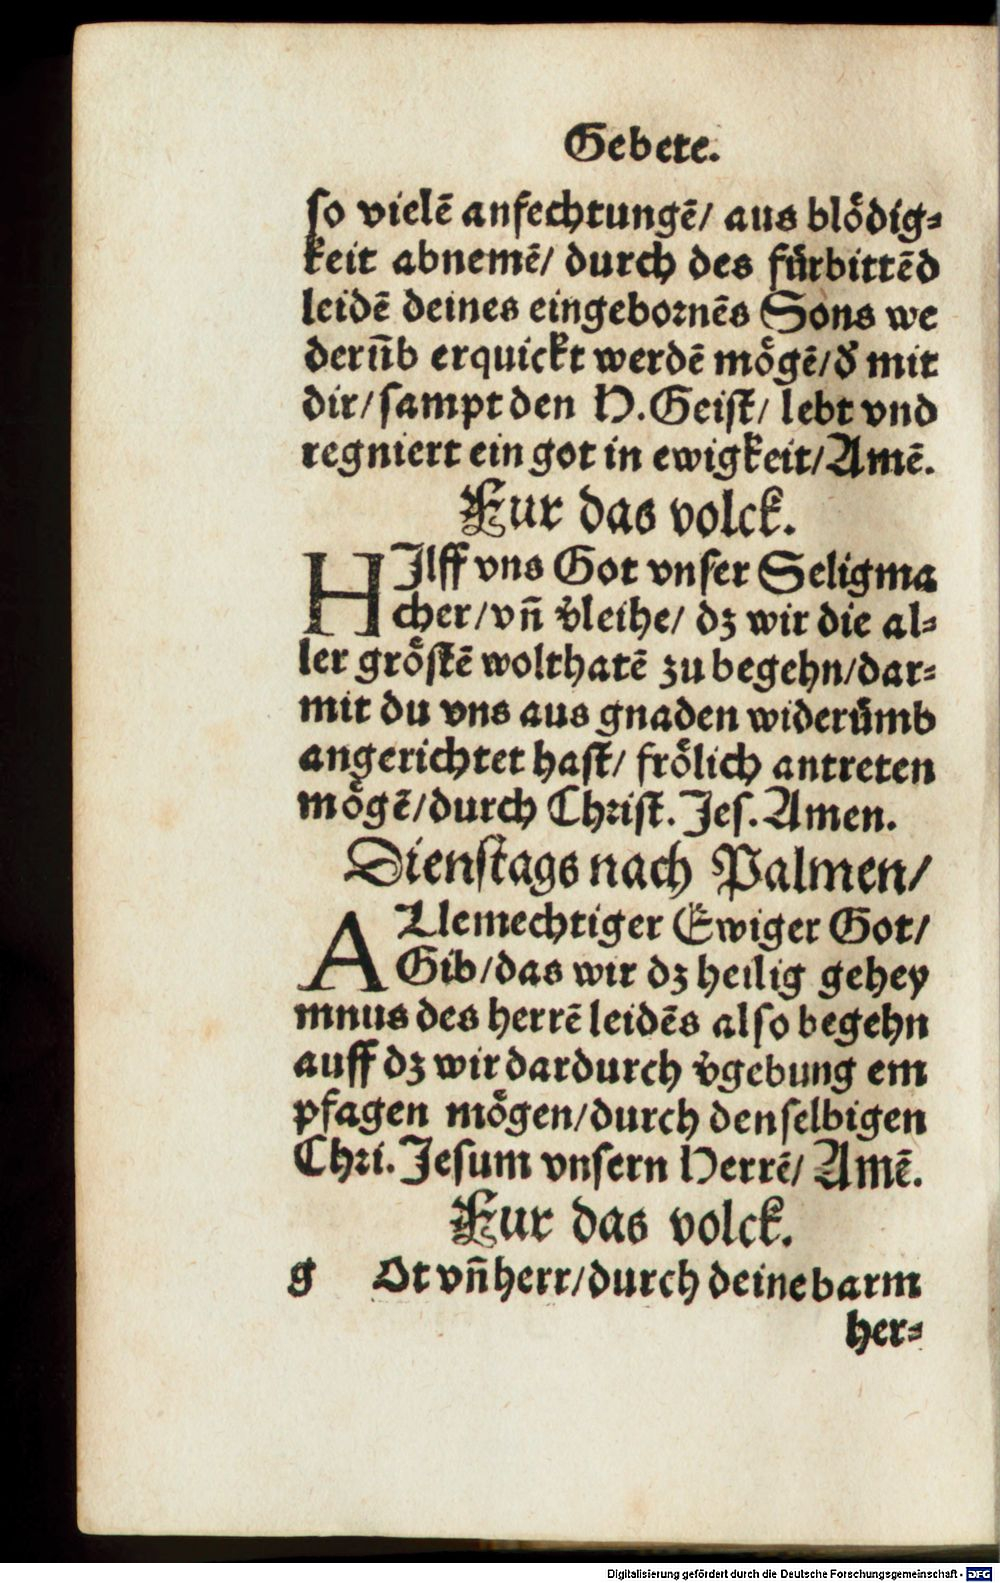 Gebete.
so vielē anfechtungē/ aus blödig⸗
keit abnemē/ durch des fürbittēd
leidē deines eingebornēs Sons we
derūb erquickt werdē mögē/ d̕ mit
dir/ sampt den H. Geist/ lebt vnd
regniert ein got in ewigkeit/ Amē.
Fur das volck.
HIlff vns Got vnser Seligma
cher/ vñ v̕leihe/ dz wir die al⸗
ler gröstē wolthatē zu begehn/ dar⸗
mit du vns aus gnaden widerümb
angerichtet hast/ frölich antreten
mögē/ durch Christ. Jes. Amen.
Dienstags nach Palmen/
ALlemechtiger Ewiger Got/
Gib/ das wir dz heilig gehey
mnus des herrē leidēs also begehn
auff dz wir dardurch v̕gebung em
pfagen mögen/ durch denselbigen
Chri. Jesum vnsern Herrē/ Amē.
Fur das volck.
g Ot vñ herr/ durch deine barm
her⸗
Digitalisierung gefördert durch die Deutsche Forschungsgemeinschaft - DFG